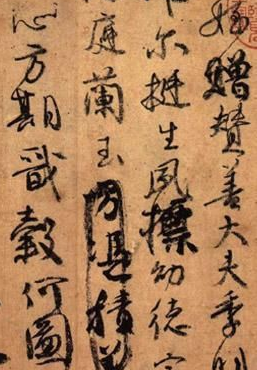 姪贈贊善大夫季
尔挺生夙標幼德
庭蘭玉方憑積善
心方期戩穀何圖